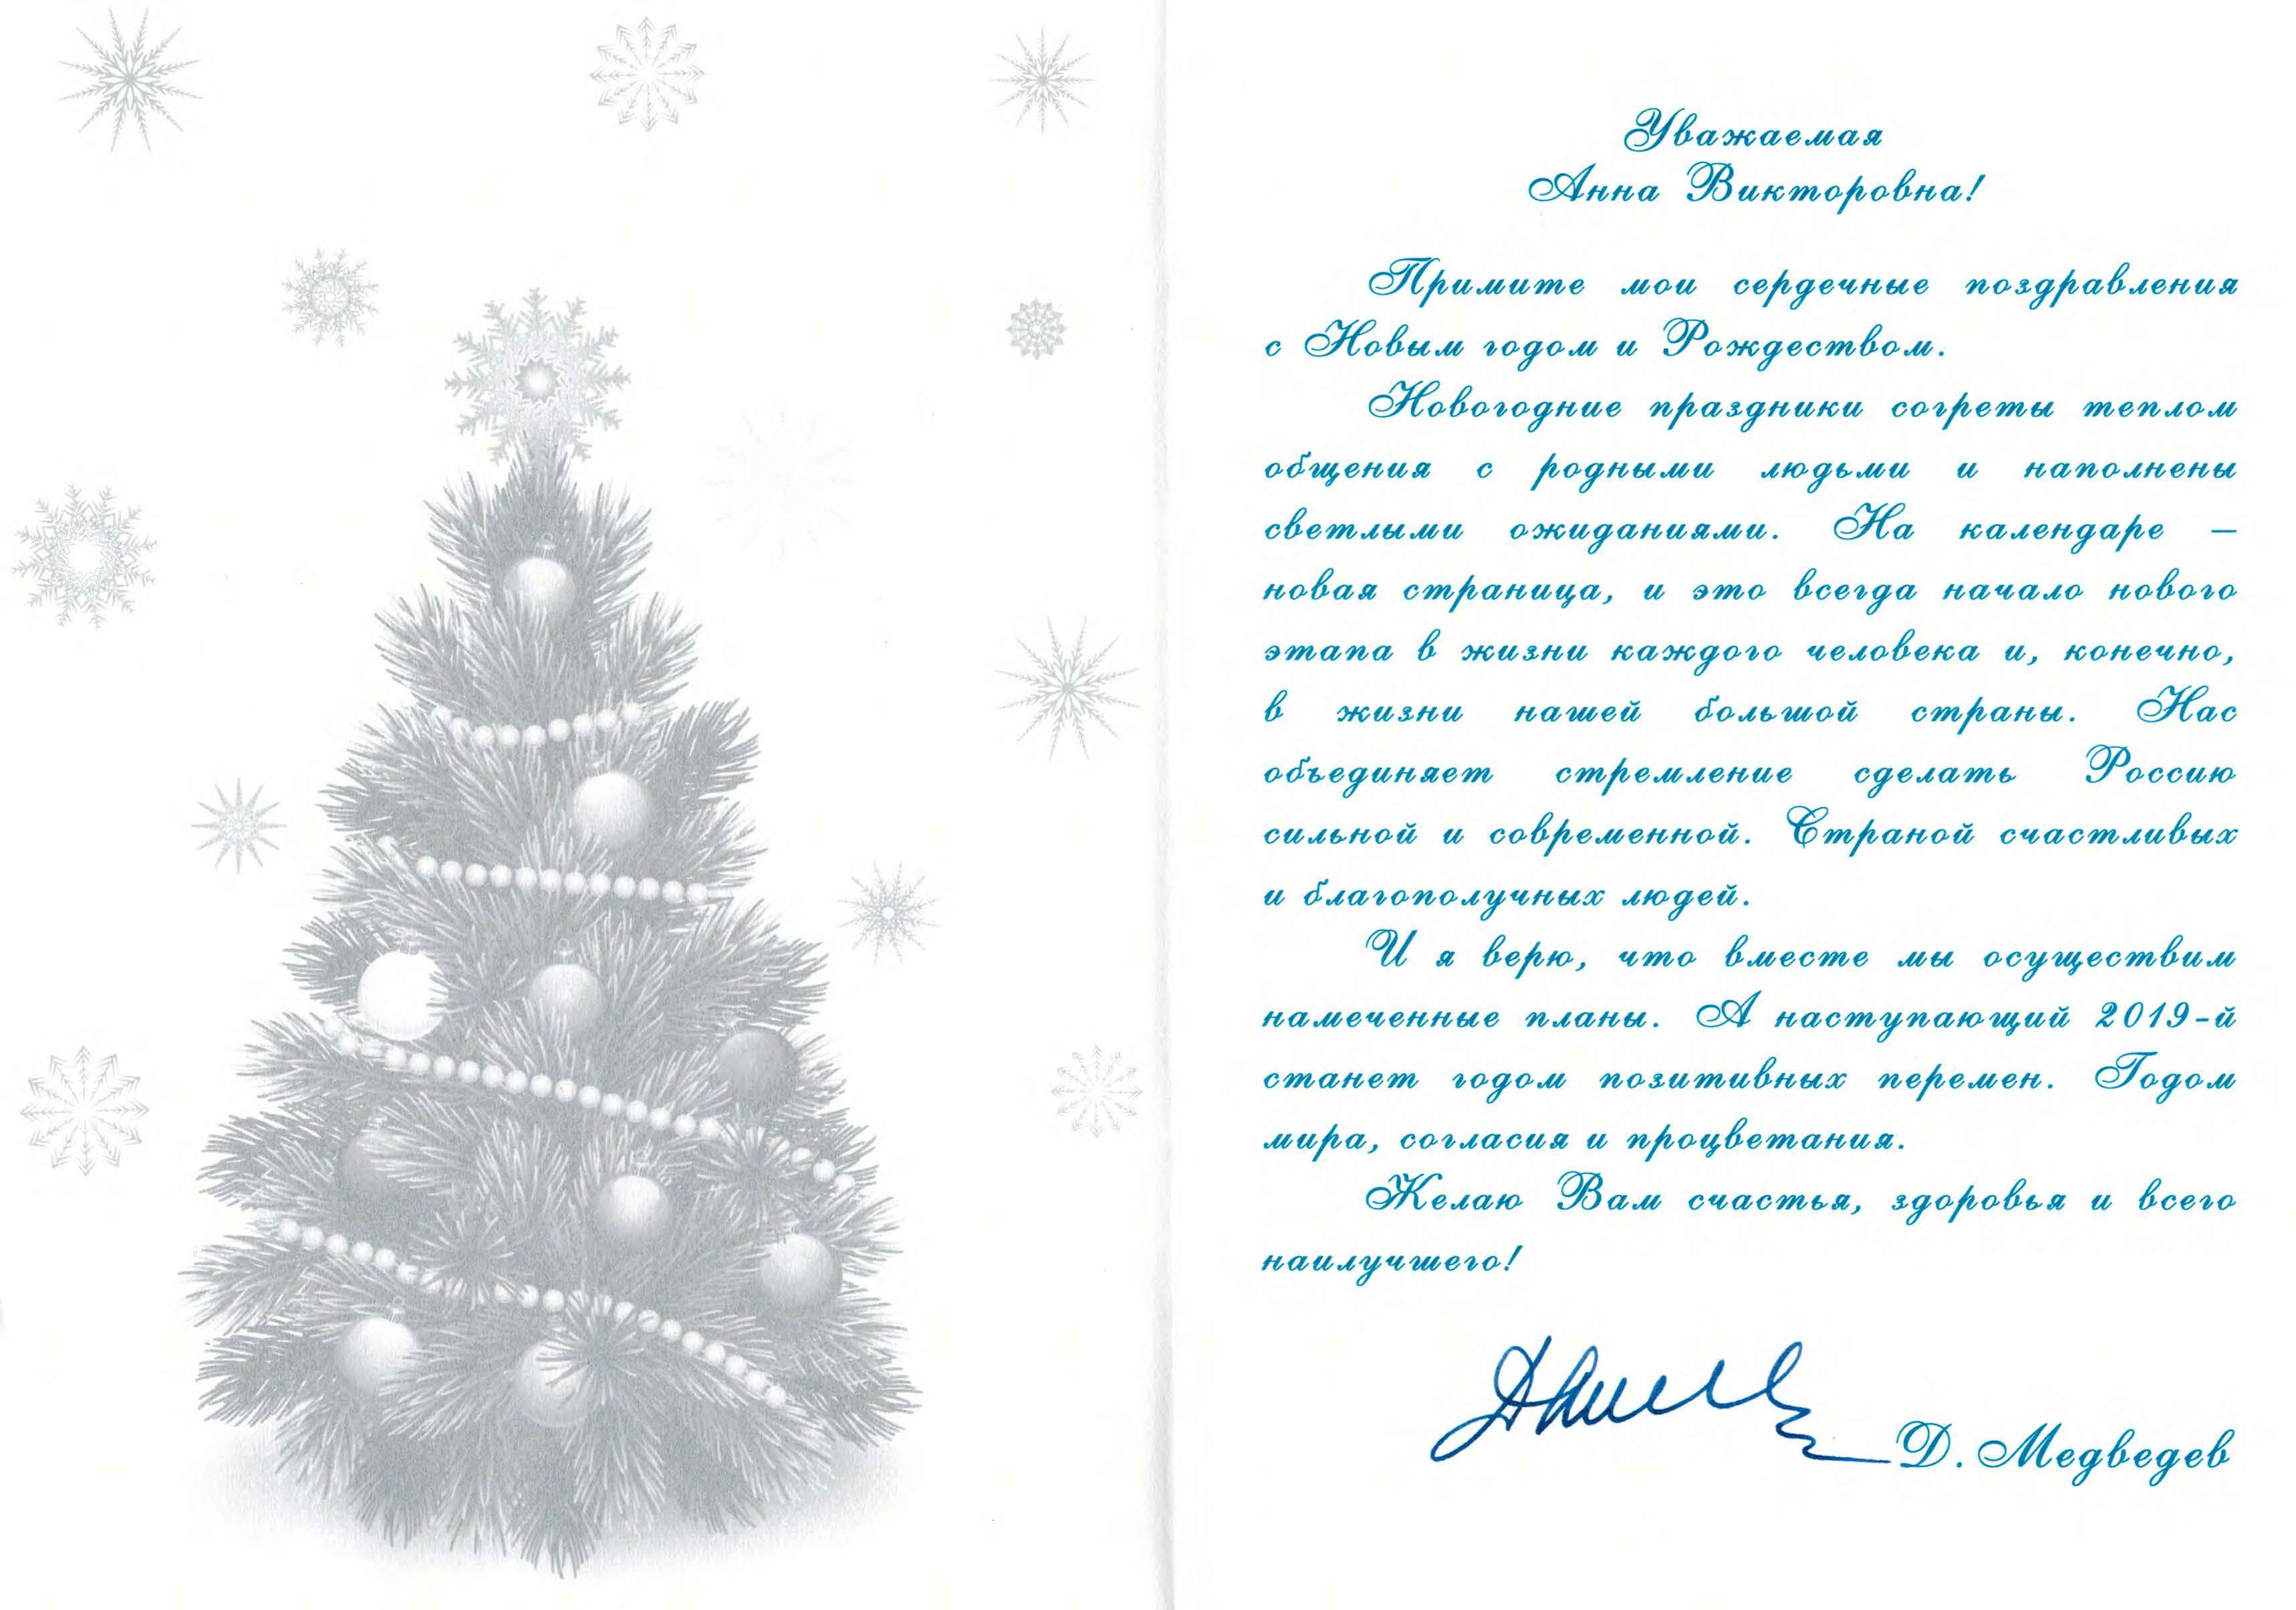 Уважаемая
Анна Викторовна!
Примите мои сердечные поздравления
с Новым годом и Рождеством.
Новогодние праздники согреты теплом
общения с родными людьми и наполнены
светлыми ожиданиями. На календаре –
новая страница, и это всегда начало нового
этапа в жизни каждого человека и, конечно,
в жизни нашей большой страны. Нас
объединяет стремление сделать Россию
сильной и современной. Страной счастливых
и благополучных людей.
И я верю, что вместе мы осуществим
намеченные планы. А наступающий 2019-й
станет годом позитивных перемен. Годом
мира, согласия и процветания.
Желаю Вам счастья, здоровья и всего
наилучшего!
Д. Медведев